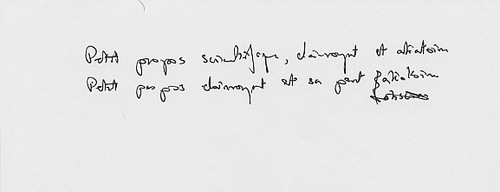 Petit propos scientifique, clairvoyant et aléatoire
Petit propos clairvoyant et sa part